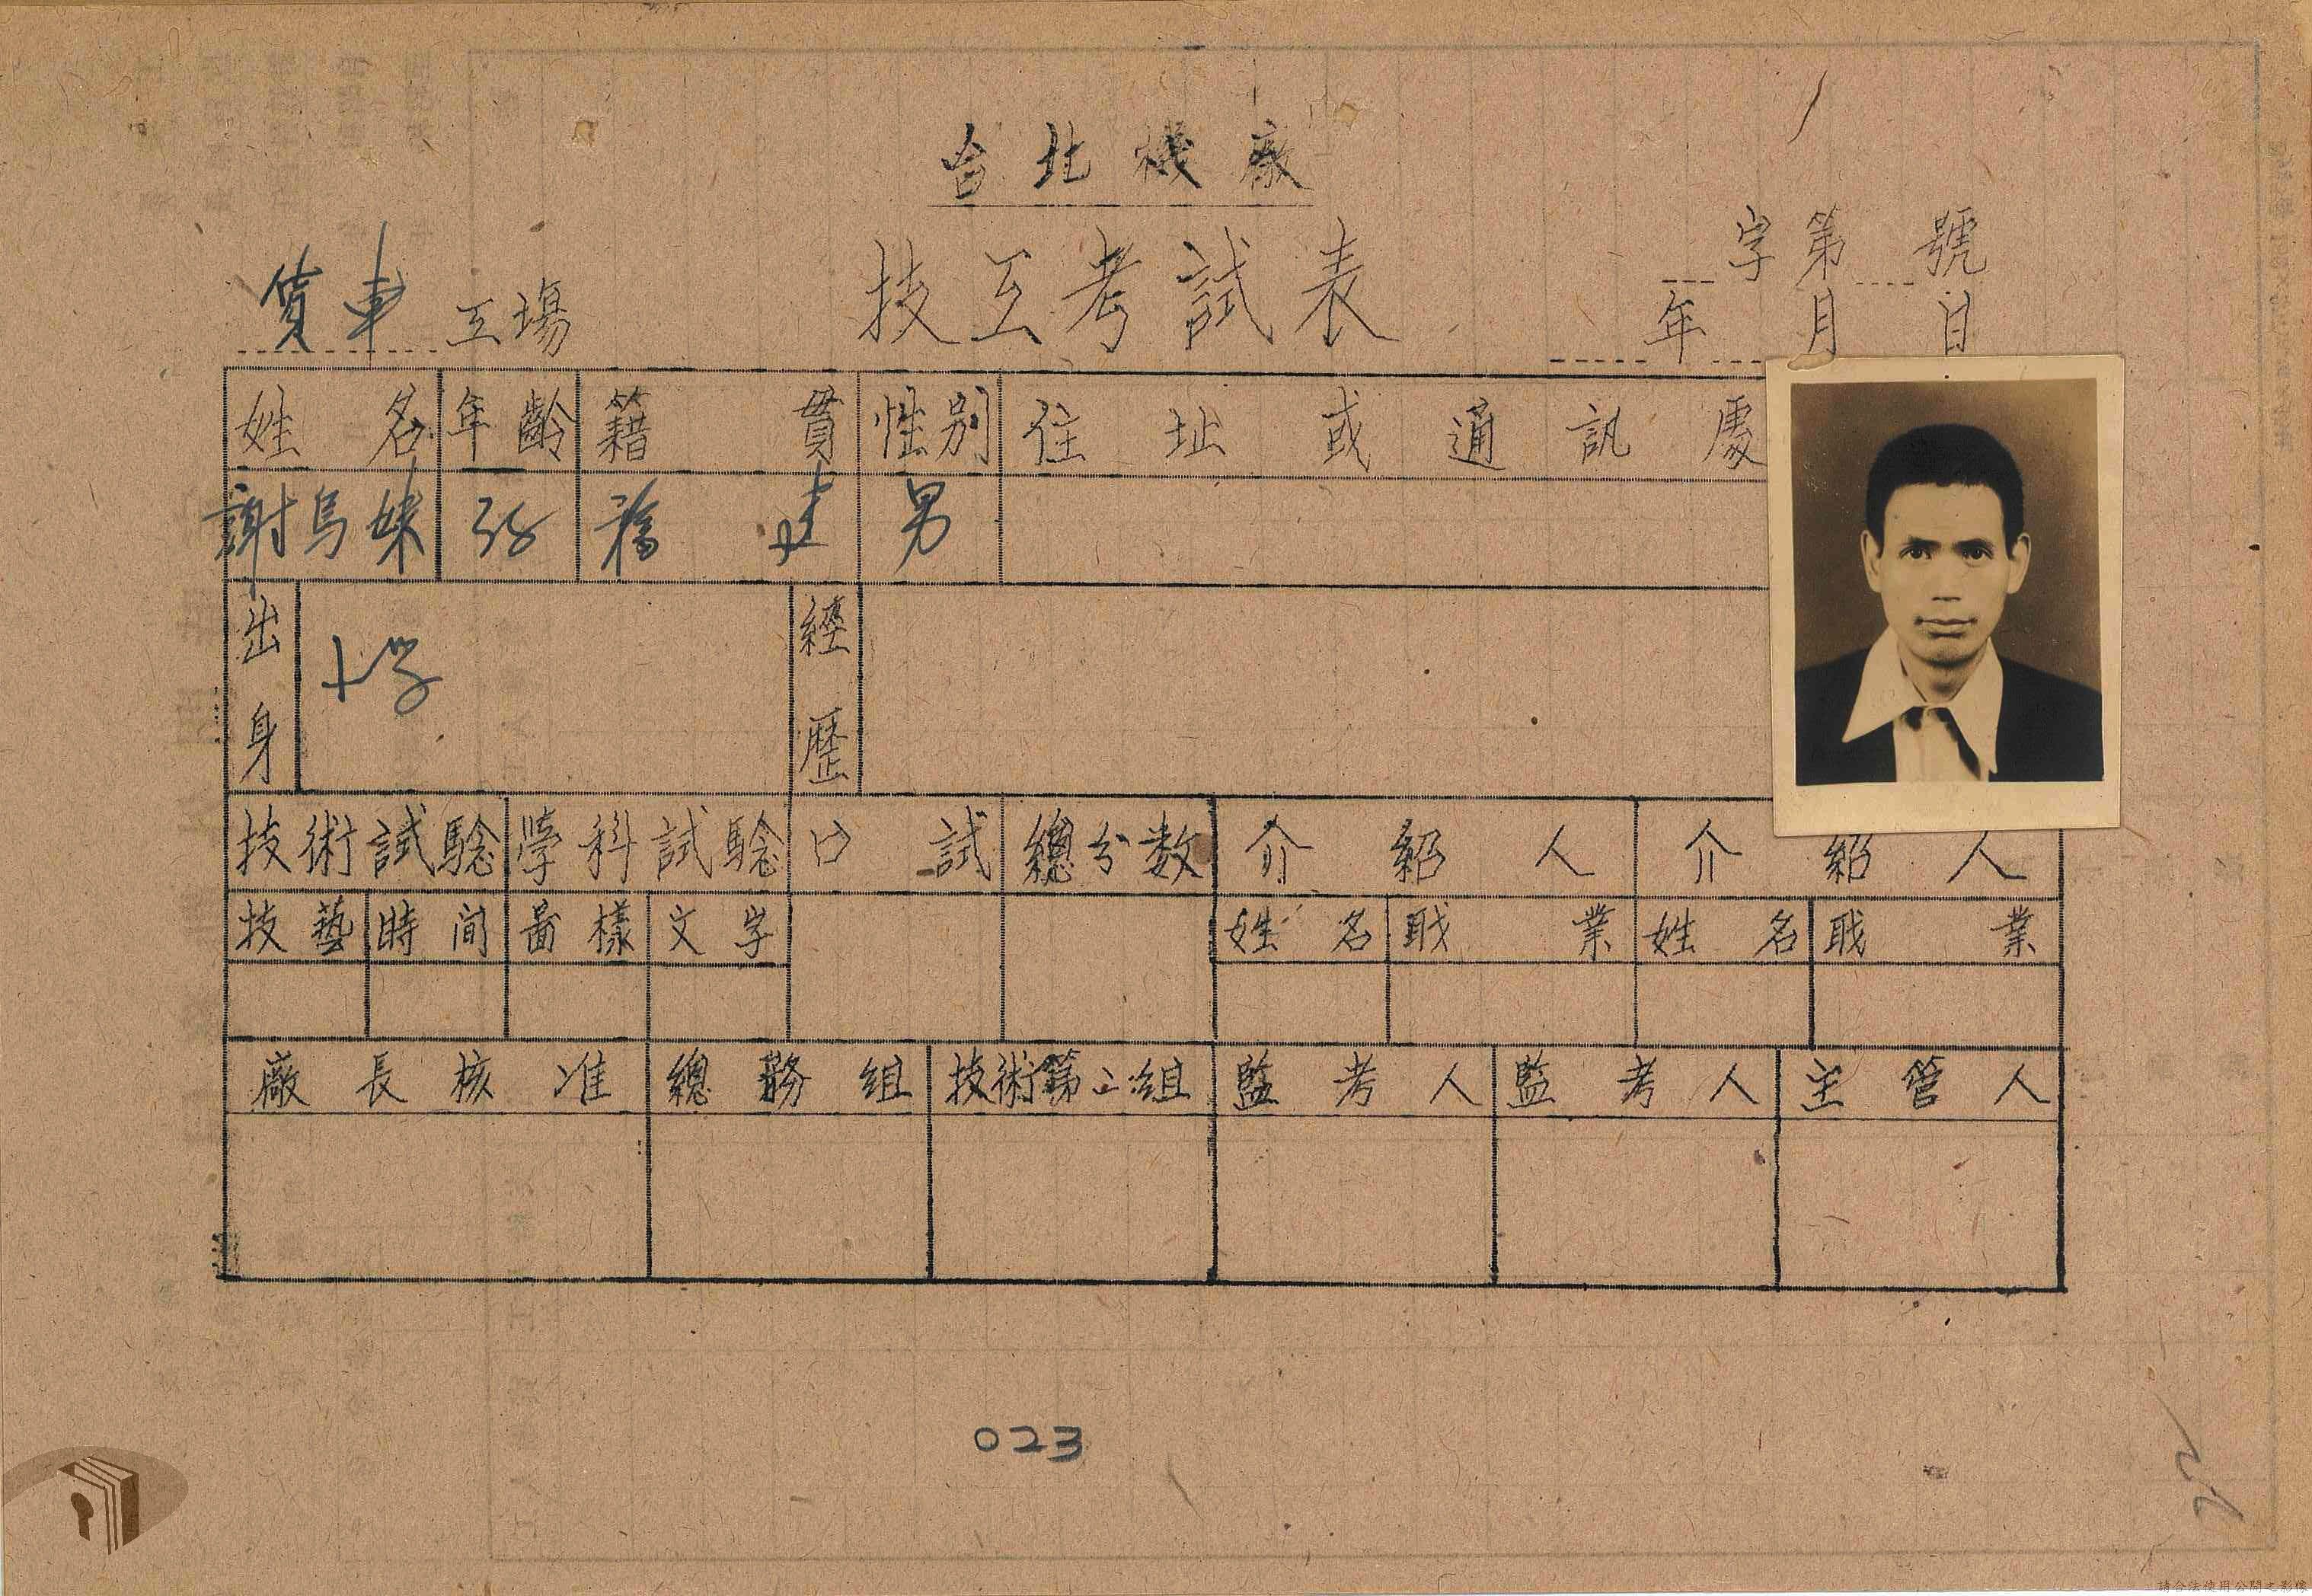 台北機廠
字第 號
貨車工場 技工考試表 年 月 日
姓名 年齡 籍貫 性別 住址或通訊處
謝烏妹 38 福建 男
出身 小学 經歷
技術試驗 學科試驗 口試 總分数 介紹人 介紹人
技藝 時間 圖樣 文字 姓名 職業 姓名 職業
廠長核准 總務組 技術第二組 監考人 監考人 主管人
023
請合法使用公開之影像